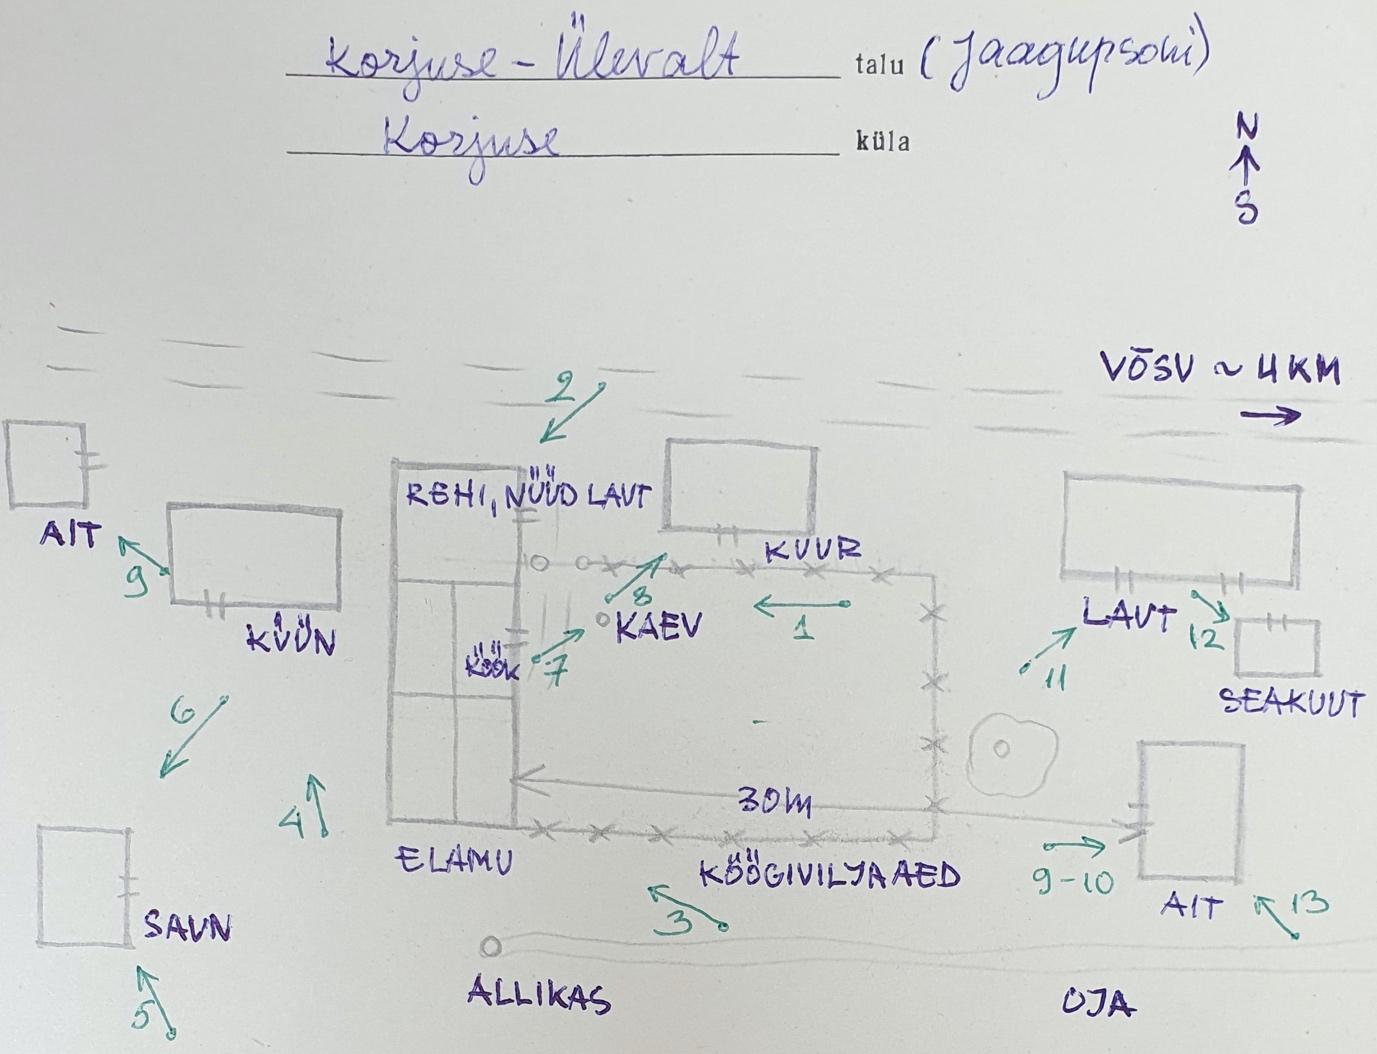 Korjuse - Ülevalt talu (Jaagupsoni)
Korjuse küla
N
S
VÕSU ~ 4 KM
2
REHI, NÜÜD LAUT
AIT
9
KUUR
8
KÜÜN
KAEV
1
LAUT
12
KÖÖK
7
11
SEAKUUT
6
30m
4
ELAMU
KÖÖGIVILJAAED
9-10
AIT
13
3
SAUN
ALLIKAS
OJA
5